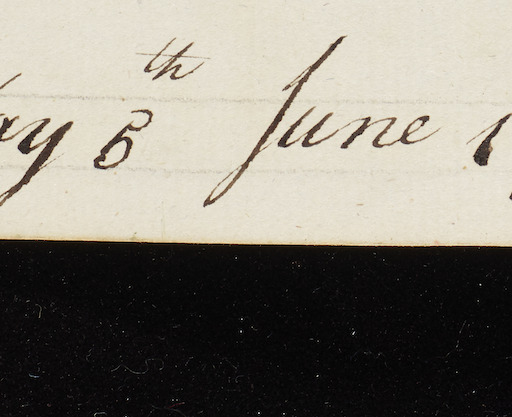 ay 5th June 1